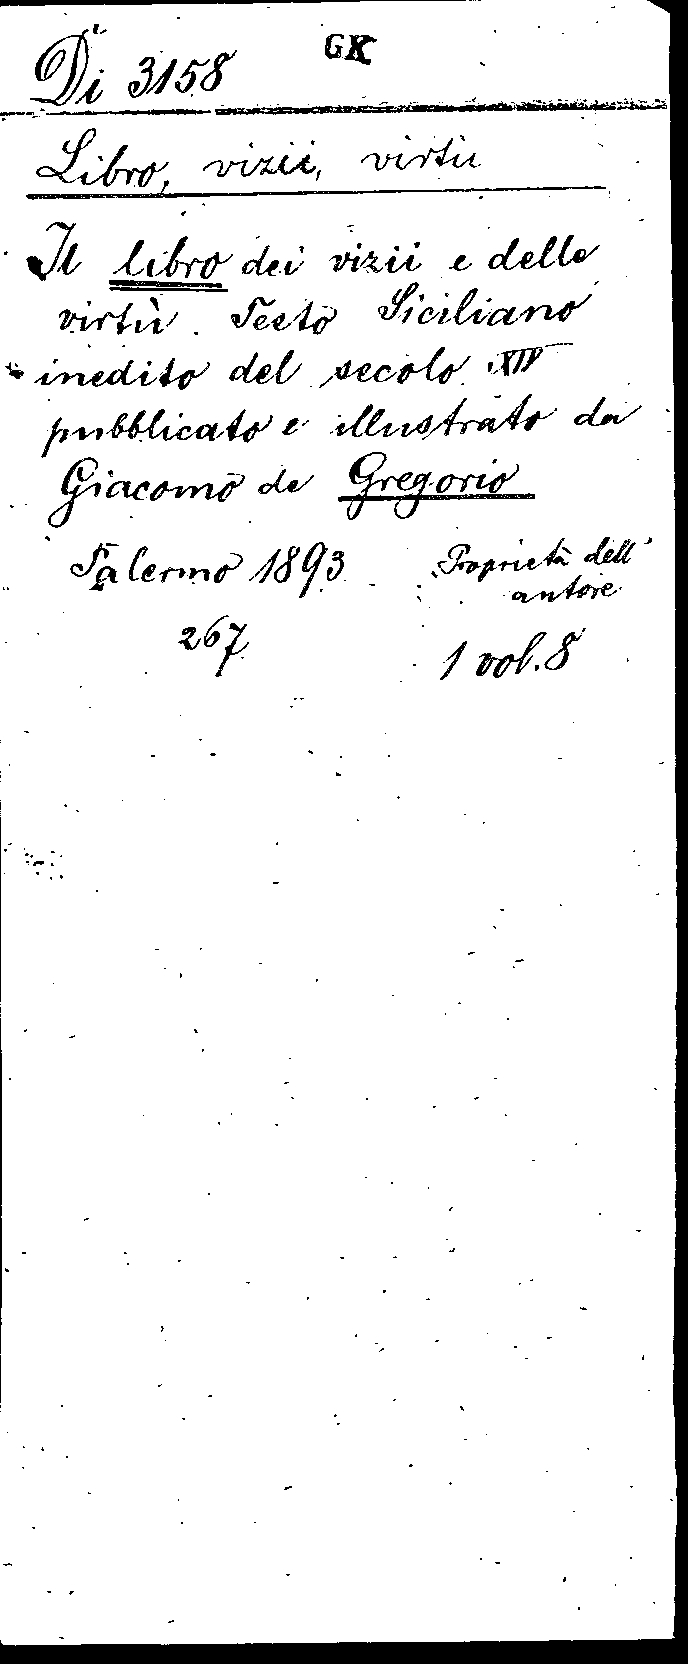 GK
Di 3158
Libro, vizii, virtù
Il libro dei vizii e delle
virtù. Testo Siciliano
inedito del secolo XIV
pubblicato e illustrato da
Giacomo de Gregorio
Palermo 1893
Proprietà dell'
autore
267
1 vol. 8